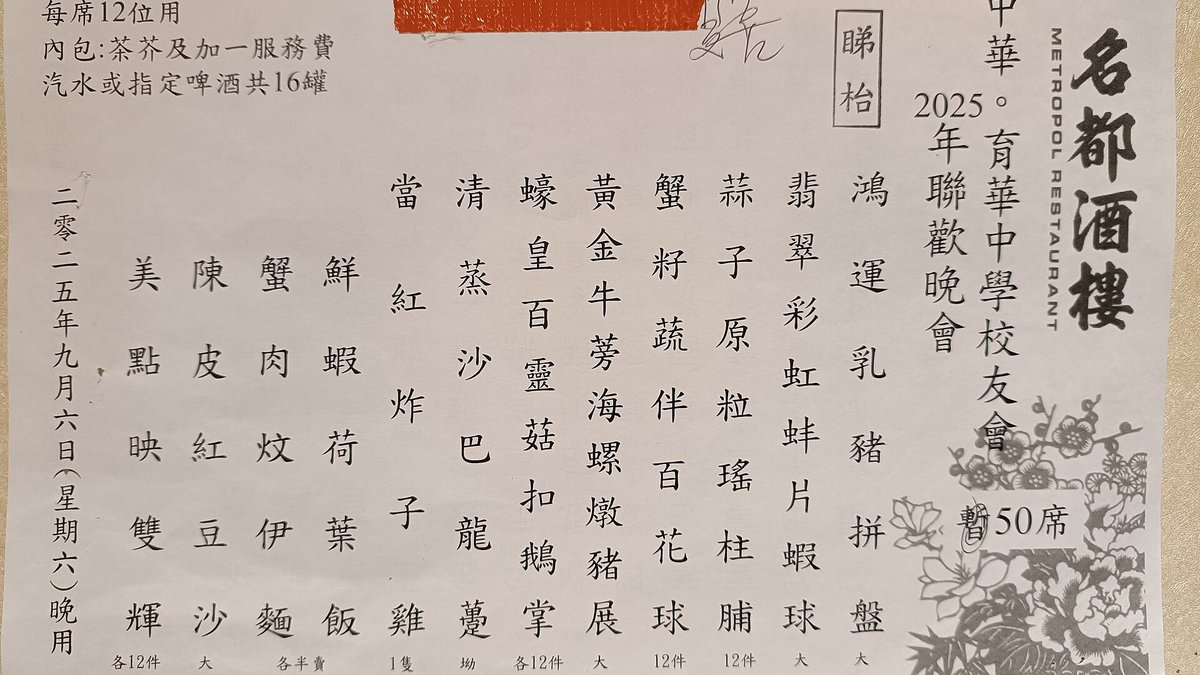 名都酒樓
METROPOL RESTAURANT
中華。育華中學校友會
2025年聯歡晚會
暫50席
睇枱
鴻運乳豬拼盤 大
翡翠彩虹蚌片蝦球 大
蒜子原粒瑤柱脯 12件
蟹籽蔬伴百花球 12件
黃金牛蒡海螺燉豬展 大
蠔皇百靈菇扣鵝掌 各12件
清蒸沙巴龍躉 㘭
當紅炸子雞 1隻
鮮蝦荷葉飯
蟹肉炆伊麵
各半賣
陳皮紅豆沙 大
美點映雙輝 各12件
二零二五年九月六日(星期六)晚用
每席12位用
內包:茶芥及加一服務費
汽水或指定啤酒共16罐